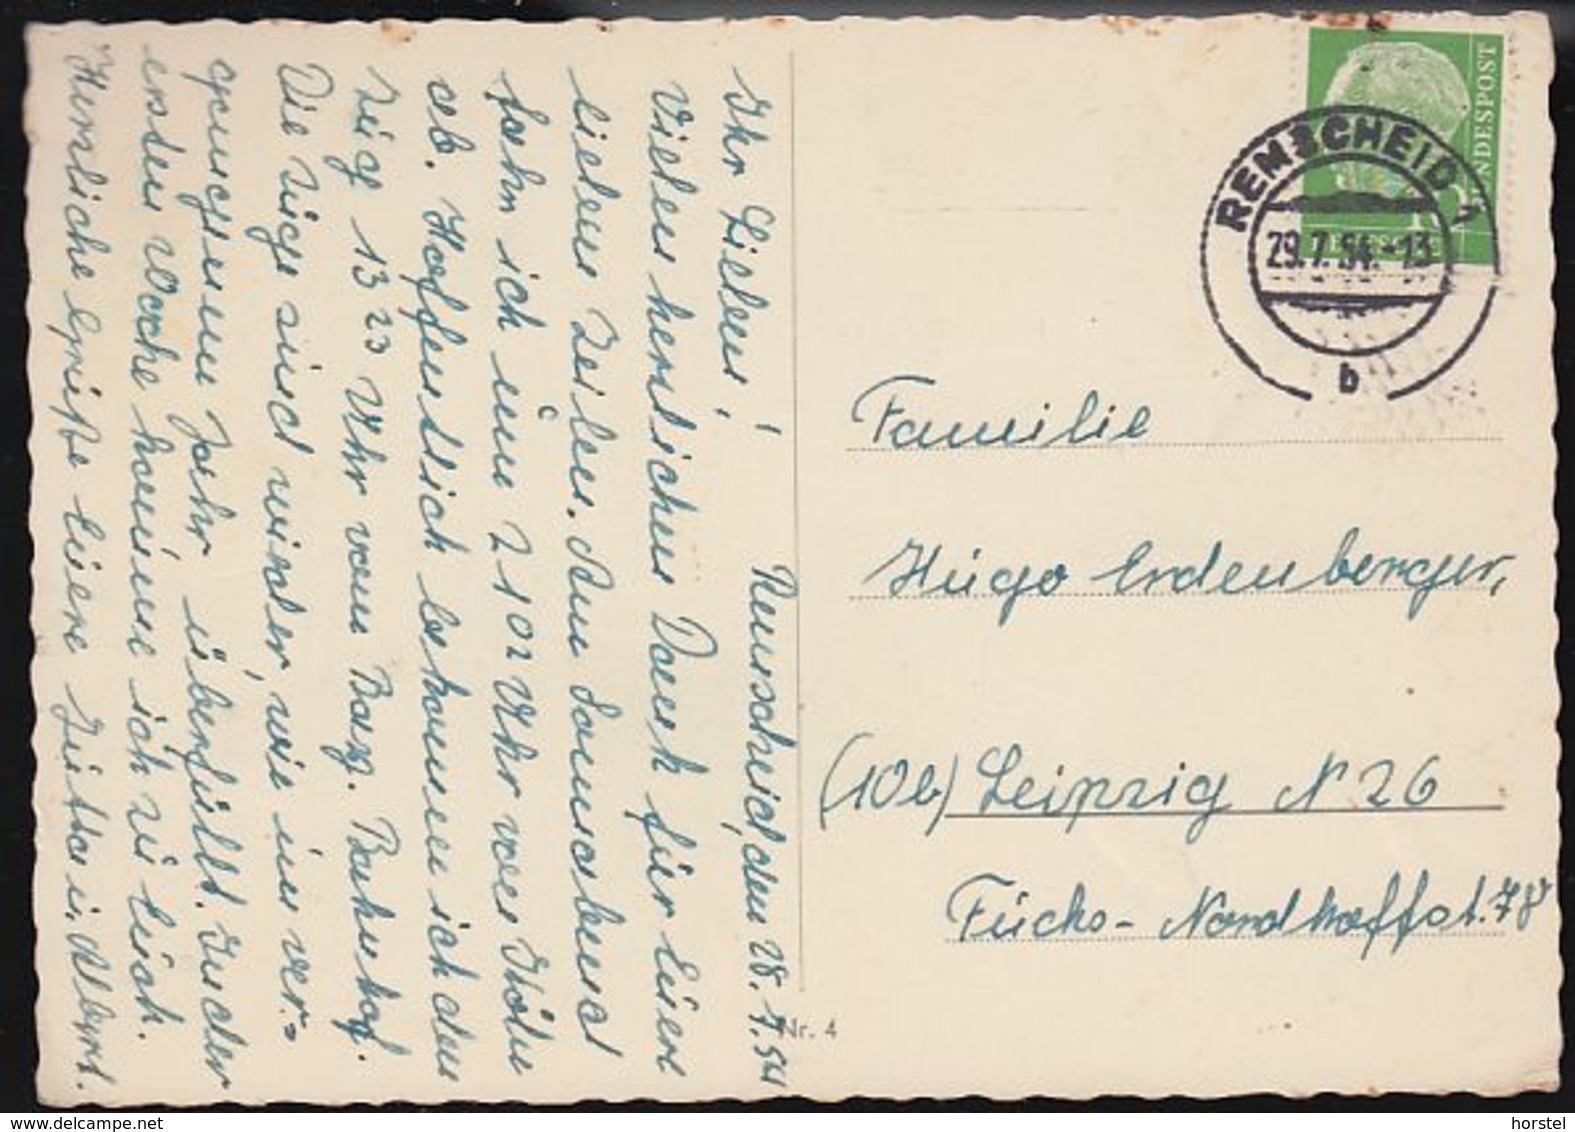 Remscheid, den 28.7.54
Ihr Lieben!
Vielen herzlichen Dank für Eure
lieben Zeilen. Am Sonnabend
fahr ich um 2102 Uhr von Köln
ab. Hoffentlich bekomme ich den
Zug 1323 Uhr vom Bay. Bahnhof.
Die Züge sind wieder, wie im ver-
gangenem Jahr überfüllt. In der
ersten Woche komme ich zu Euch.
Herzliche Grüße Eure Jutta u. Albert.
DEUTSCHE BUNDESPOST
REMSCHEID 1
29.7.54.-13
b
Familie
Hugo Erdenberger,
(10b) Leipzig N 26
Fuchs-Nordhoffst. 78
Nr. 4
horstel